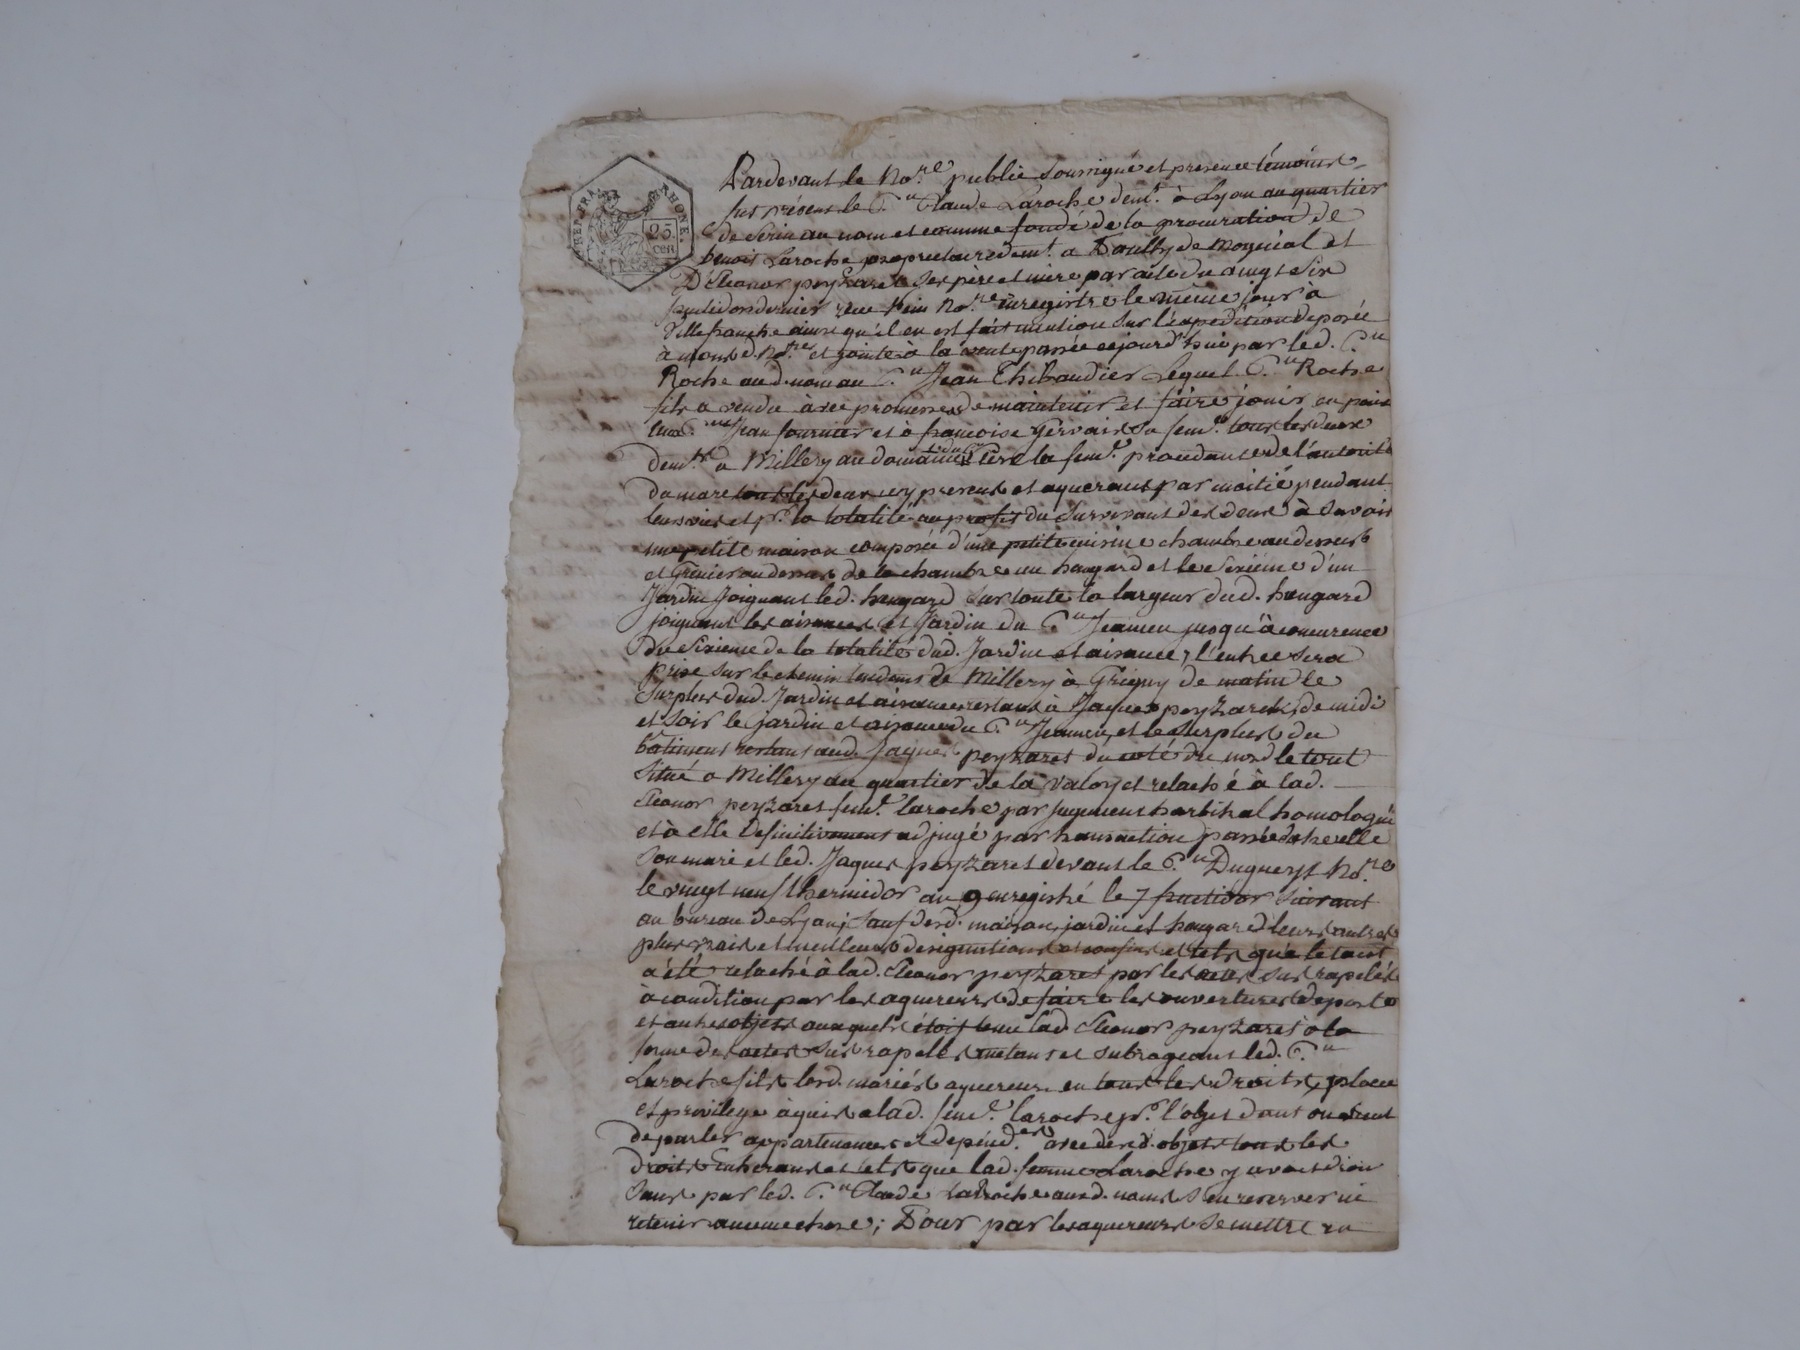 REP. FRA. RHONE.
25 cen
Pardevant le No.re public soussigné et presence témoins
fut présent le C.en Claude Laroche dem.t à Lyon au quartier
de Serin au nom et comme fondé de la procuration de
benoit Laroche proprietaire dem.t a de et
D'Eleonor peyzaret ses père et mere par acte du vingt six
fructidor dernier reçu No.re enregistré le même jour à
Villefranche ainsi qu'il en est fait mention sur l'expedition deposée
à No.re et jointe à la vente passée cejourd'hui par led. C.en
Roche aud. nom au C.en Jean Thibaudier Lequel C.en Roche
fils a vendu avec promesse de maintenir et faire jouir en paix
Jean fournier et à françoise Gervais sa fem.e tous les deux
dem.ts a Millery au domaine la fem.e procedante de l'autorité
du mari tous les deux icy presents et aquerants par moitié pendant
leurs vies et p.r la totalité au profit du survivant des deux à savoir
une petite maison composée d'une petite cuisine chambre au dessus
et Grenier au dessus de la chambre un hangard et le sixieme d'un
Jardin Joignant led. hangard sur toute la largeur dud. hangard
joignant les aisances et Jardin du C.en Jeamen jusqu'à concurence
du sixieme de la totalité dud. Jardin et aisance, l'entrée sera
prise sur le chemin tendant de Millery à Grigny de matin le
surplus dud. Jardin et aisances restant à Jaques peyzaret, de midi
et soir le jardin et aisance du C.en Jeamen, et le surplus du
batiment restant aud. Jaques peyzaret du coté du nord le tout
situé a Millery au quartier de la valoy et relaché à lad.
Eleonor peyzaret fem.e laroche par Jugement harbitral homologué
et à elle definitivement adjugé par transaction passée entre elle
son mari et led. Jaques peyzaret devant le C.en Duguerst No.re
le vingt neuf thermidor an 9 enregistré le 7 fructidor suivant
au bureau de Lyon; sauf desd. maison, jardin et hangard leurs autres
plus vraies et meilleurs designations et confins et tels que le tout
a été relaché à lad. Eleonor peyzaret par les actes sus rapelés
à condition par les aquereurs de faire les ouvertures de porte
et autres objets auxquels étoit tenu lad. Eleonor peyzaret à la
forme des actes sus rapellés mettant et subrogeant led. C.en
Laroche fils lesd. mariés aquereurs en tous les droits, place
et privilege aquis a lad. fem.e laroche p.r l'objet dont on vient
de parler appartenances et depend.ces avec desd. objets tous les
droits et tels que lad. femme Laroche y avoit
sans par led. C.en Claude Laroche aud. nom s'en reserver ni
retenir aucune chose; Pour par les aquereurs se mettre en